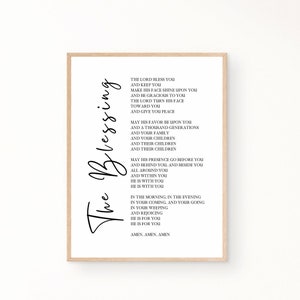 The Blessing
THE LORD BLESS YOU
AND KEEP YOU
MAKE HIS FACE SHINE UPON YOU
AND BE GRACIOUS TO YOU
THE LORD TURN HIS FACE
TOWARD YOU
AND GIVE YOU PEACE
MAY HIS FAVOR BE UPON YOU
AND A THOUSAND GENERATIONS
AND YOUR FAMILY
AND YOUR CHILDREN
AND THEIR CHILDREN
AND THEIR CHILDREN
MAY HIS PRESENCE GO BEFORE YOU
AND BEHIND YOU, AND BESIDE YOU
ALL AROUND YOU
AND WITHIN YOU
HE IS WITH YOU
HE IS WITH YOU
IN THE MORNING, IN THE EVENING
IN YOUR COMING, AND YOUR GOING
IN YOUR WEEPING
AND REJOICING
HE IS FOR YOU
HE IS FOR YOU
AMEN, AMEN, AMEN